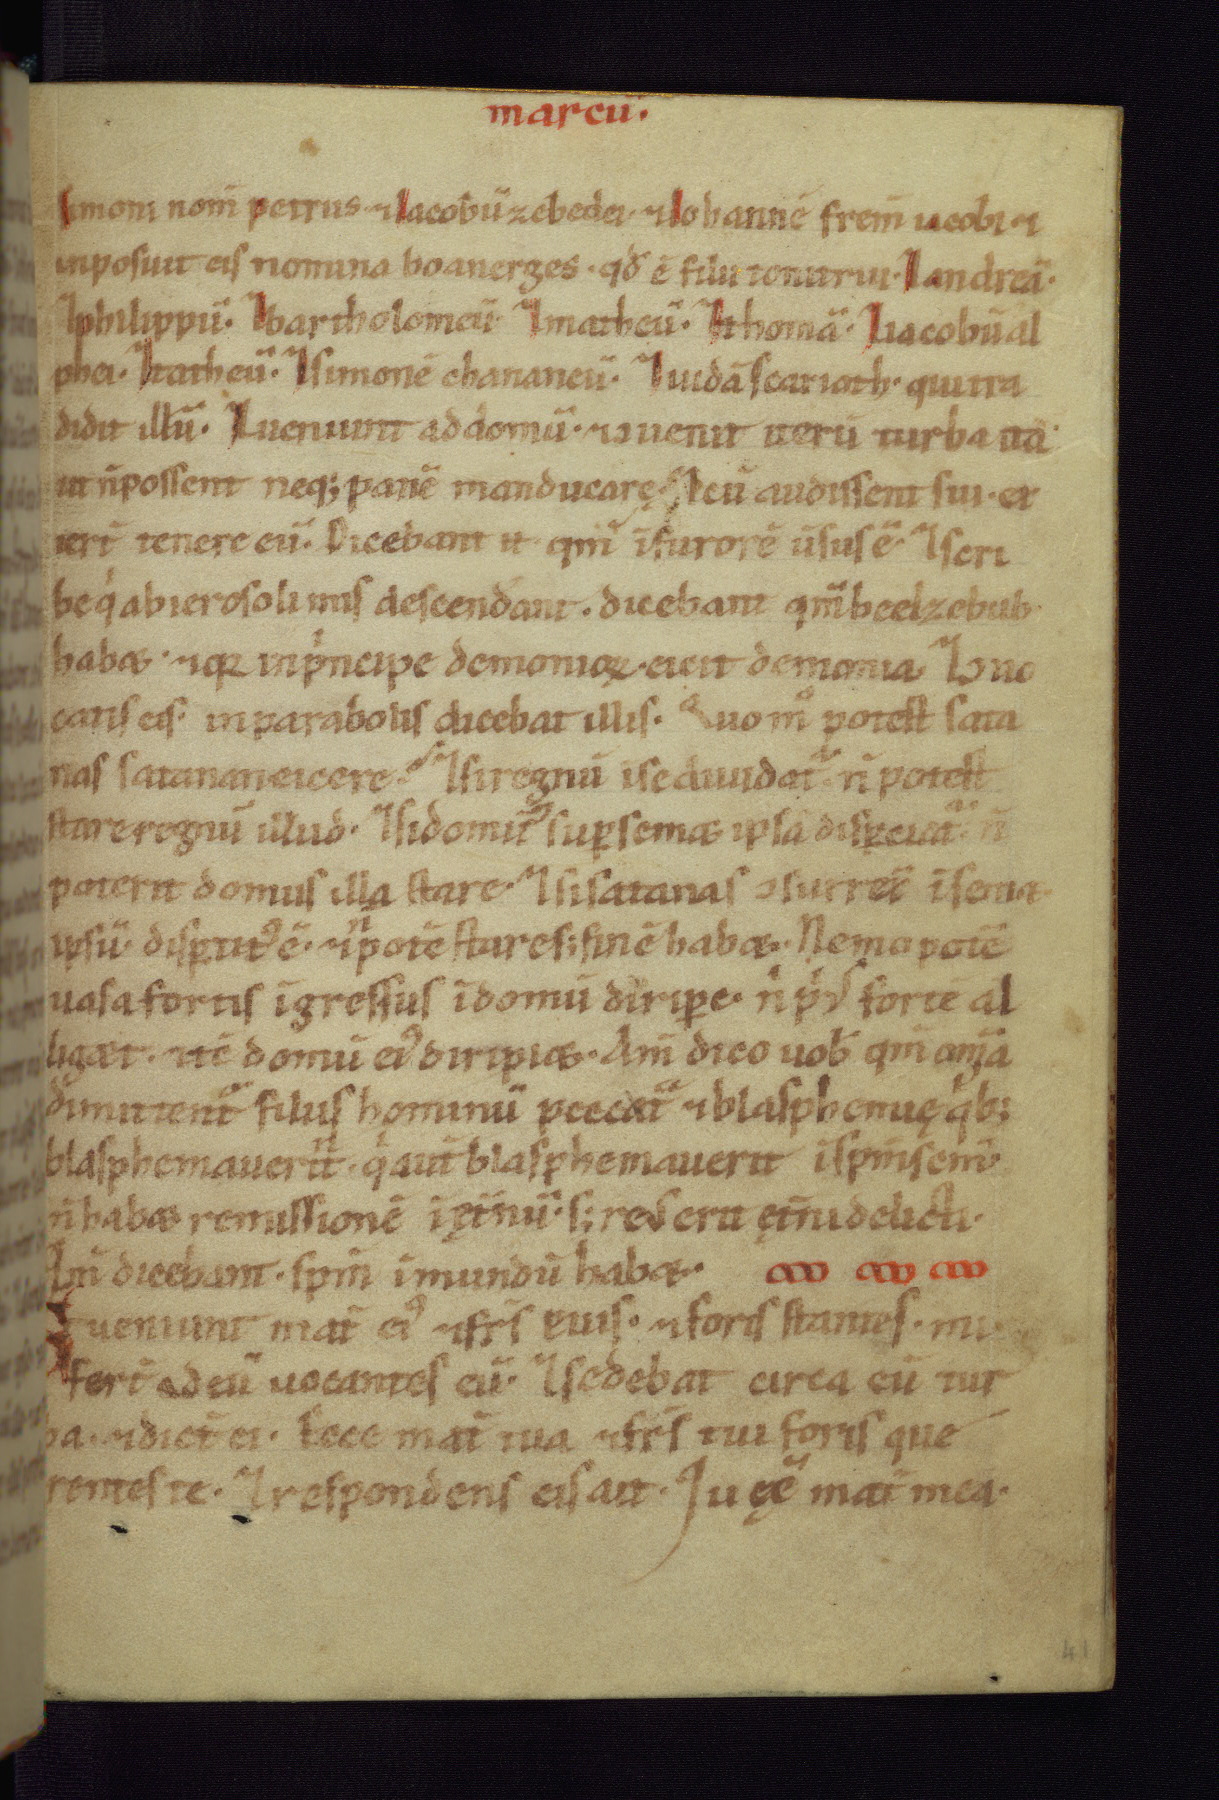 marcū.
simoni nom̄ petrus. ⁊ Iacobū zebedei. ⁊ Iohannē frem̄ iacobi ⁊
inposuit eis nomina boanerges. qđ ē filii tonitrui. ⁊ andreā.
⁊ philippū. ⁊ bartholomeū. ⁊ matheū. ⁊ thomā. ⁊ iacobū al
phei. ⁊ tatheū. ⁊ simonē chananeū. ⁊ iudā scarioth. qui tra
didit illū. ⁊ ueniunt ad domū. ⁊ ɔuenit iterū turba ita
ut n̄ possent neq; panē manducare. ⁊ cū audissent sui. ex
ierī tenere eū. Dicebant .n. qm̄ ī furorē ūsus ē. ⁊ scri
be q̍ ab ierosolimis descendant. dicebant qm̄ beelzebub
habæ. ⁊ qꝛ in pͥncipe demonioꝝ. eicit demonia. ⁊ ɔuo
catis eis. in parabolis dicebat illis. Quom̊ potest sata
nas satanan eicere. ⁊ si regnū ī se diuidat̃. n̄ potest
stare regnū illud. ⁊ si dom̄ sup semæ ipsā dispciat̃. n̄
poterit domus illa stare. ⁊ si satanas ɔsurrex̄ ī semæ
ipsū. disptit̾ ē. ⁊ n̄ potē stare s; finē habæ. Nemo potē
uasa fortis īgressus ī domū diripe. n̍ pͥꝰ fortē al
liget. ⁊ tē domū ei᾽ diripiæ. Am̄ dico uob̄ qm̄ om̄ia
dimittent̃ filiis hominū peccat̄a ⁊ blasphemię q̍b;
blasphemauerīt. q̍ aut̄ blasphemauerit ī spm̄ scm̄
n̄ habæ remissionē ī ęt̄nū. s; reꝰ erit ęt̄ni delicti.
Qm̄ dicebant. spm̄ īmundū habæ.
Et ueniunt mat̄ ei᾽ ⁊ fr̄s euis. ⁊ foris stantes. mi
serī ad eū uocantes eū. ⁊ sedebat circa eū tur
ba. ⁊ dict̄ ei. Ecce mat̄ tua ⁊ fr̄s tui foris que
rentes te. ⁊ respondens eis ait. Quę ē mat̄ mea.
41